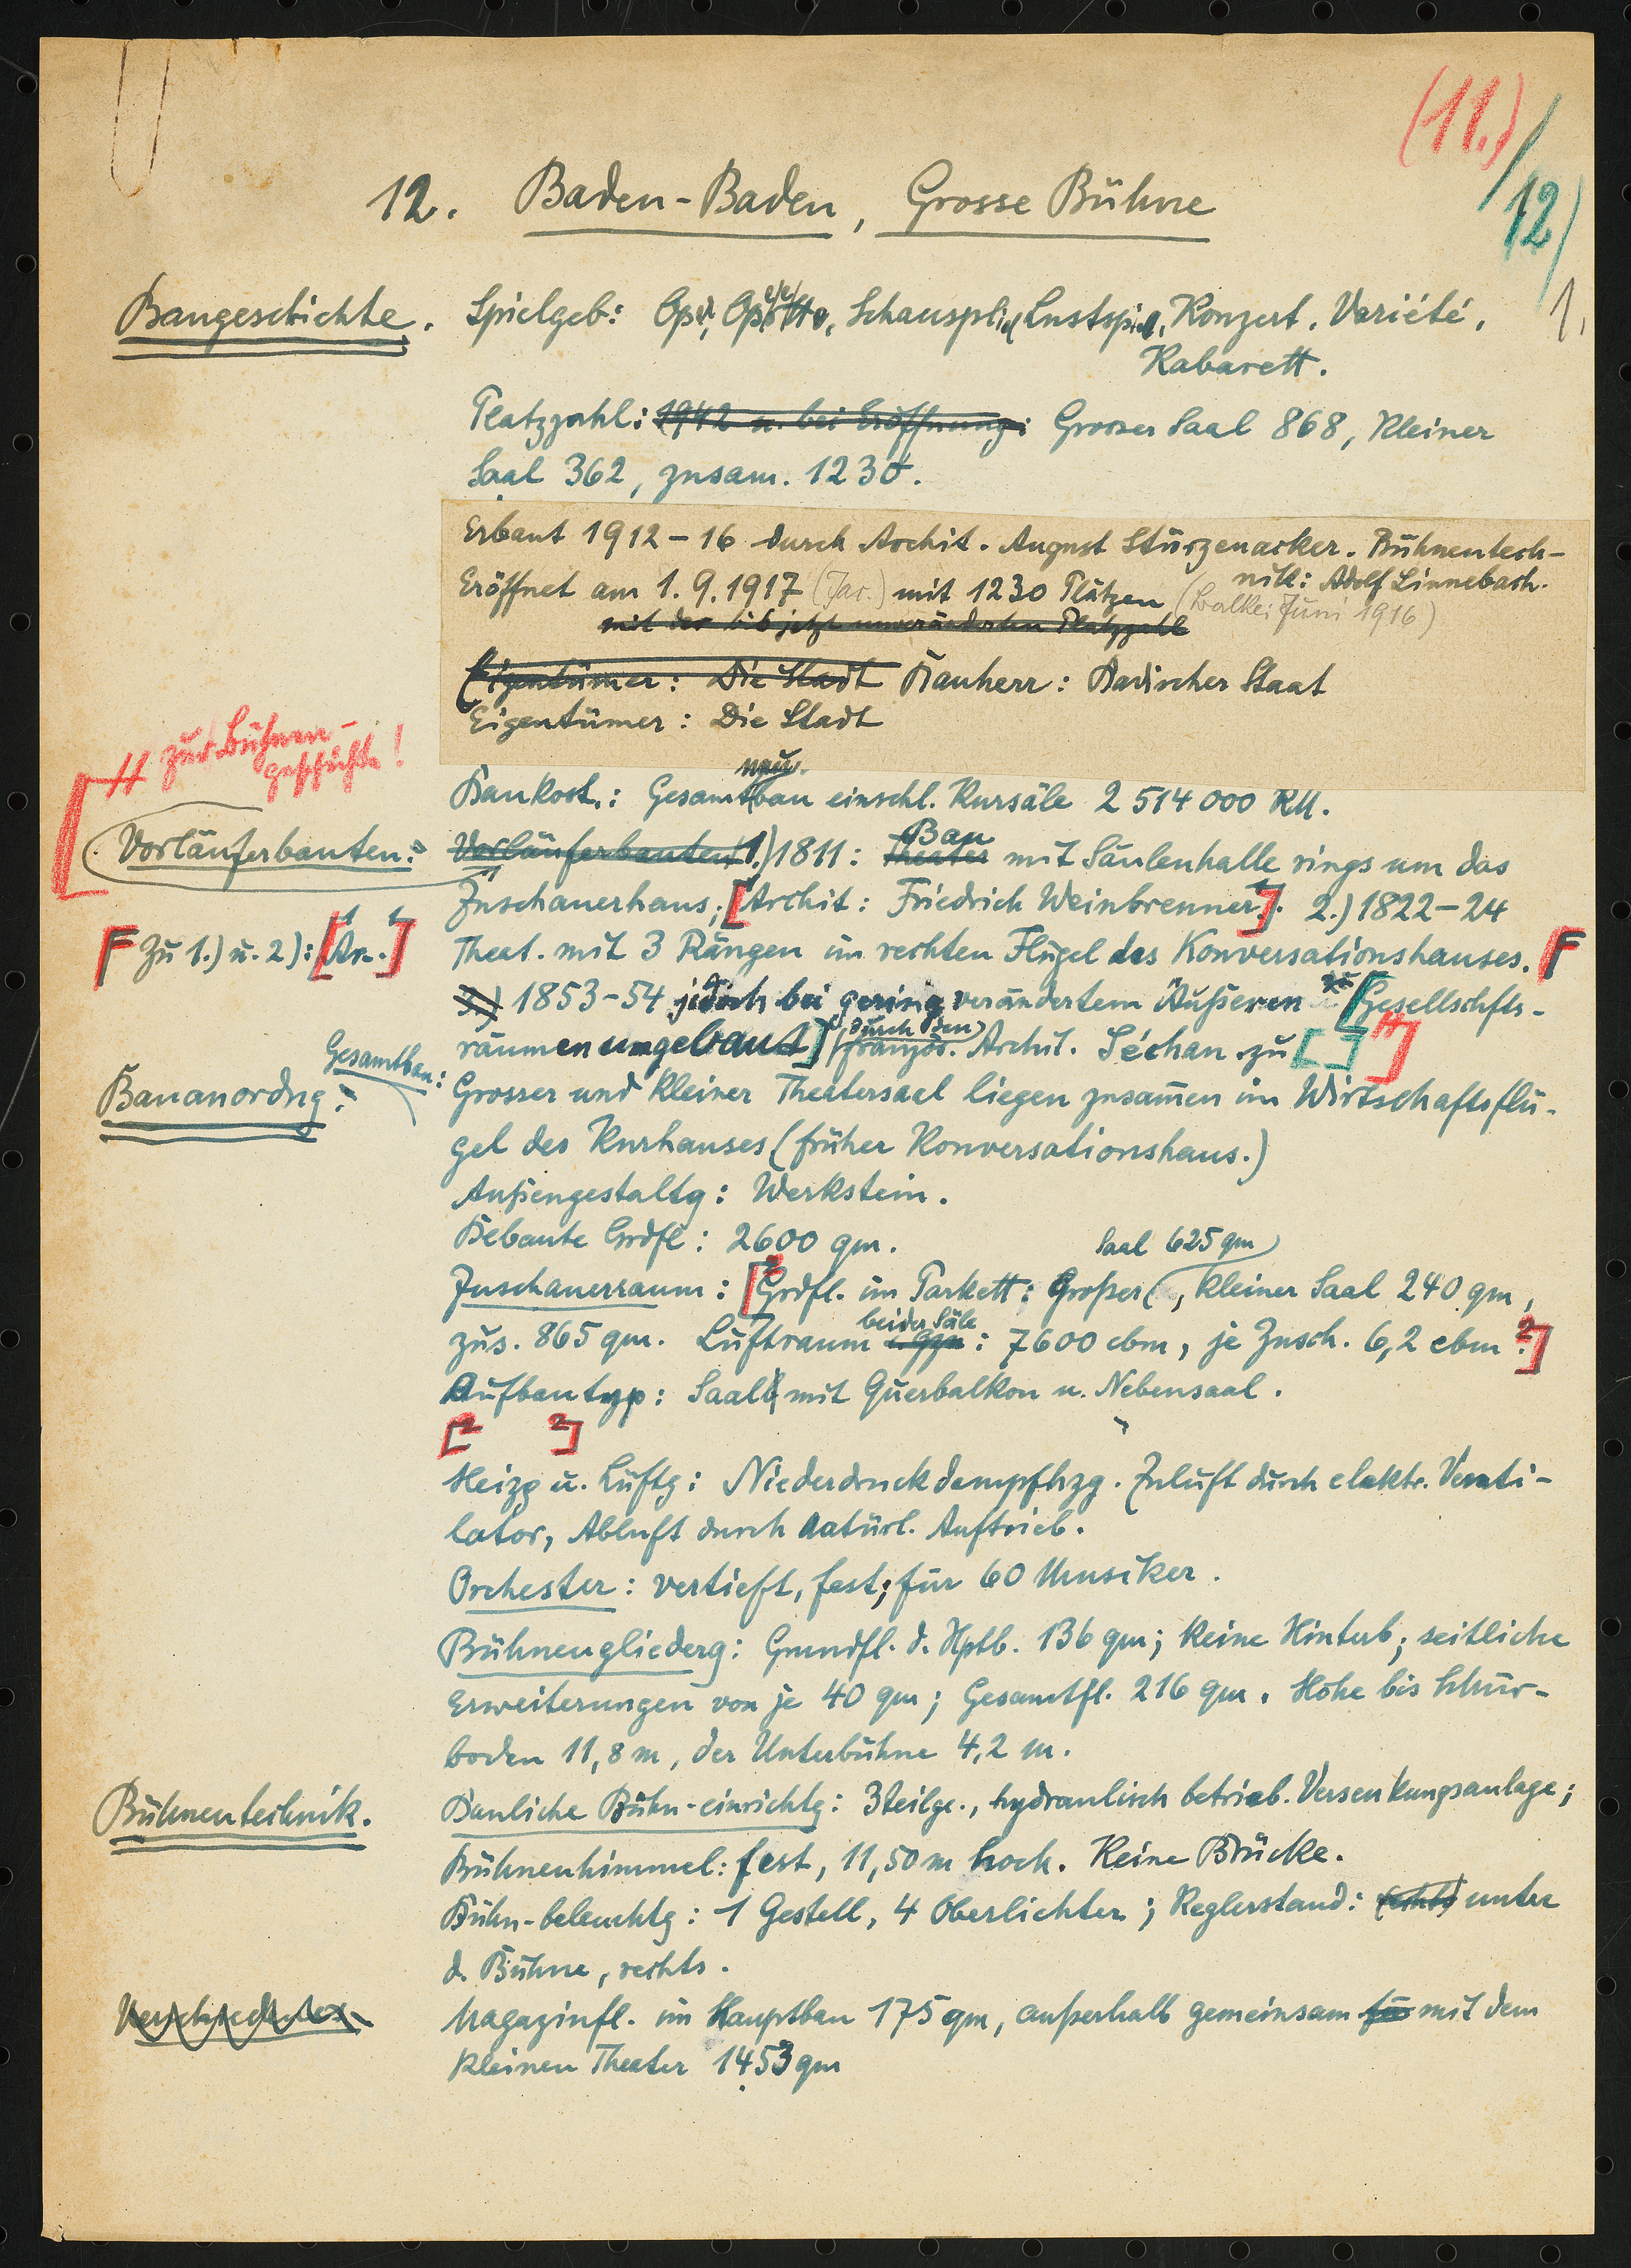 (11.)
12)
1.
12. Baden-Baden, Grosse Bühne
Baugeschichte. Spielgeb: Oper, Operette, Schauspiel, Lustspiel, Konzert, Variété,
Kabarett.
Platzzahl: 1942 u. bei Eröffnung: Grosser Saal 868, Kleiner
Saal 362, zusam. 1230.
Erbaut 1912-16 durch Archit. August Stürzenacker. Bühnentech-
nik: Adolf Linnebach.
Eröffnet am 1.9.1917 (Jar.) mit 1230 Plätzen (Walke: Juni 1916)
mit der bis jetzt unveränderten Platzzahl
Eigentümer: Die Stadt Bauherr: Badischer Staat
Eigentümer: Die Stadt
H zur Bühnen-
geschichte!
neu.
Baukost.: Gesamtbau einschl. Kursäle 2 514 000 RM.
Vorläuferbauten: Vorläuferbauten: 1.) 1811: Theater Bau mit Säulenhalle rings um das
Zuschauerhaus; [Archit: Friedrich Weinbrenner.]. 2.) 1822-24
F Zu 1.) u. 2): [Ar..] Theat. mit 3 Rängen im rechten Flügel des Konversationshauses. F
3.) 1853-54 jedoch bei gering verändertem Äußeren zu [Gesellschfts-
räumen umgebaut] (durch den) französ. Archit. Séchan zu [ ]
Gesamtbau:
Bauanordng: Grosser und Kleiner Theatersaal liegen zusammen im Wirtschaftsflü-
gel des Kurhauses (früher Konversationshaus.)
Außengestaltg: Werkstein.
Bebaute Grdfl: 2600 qm.
Saal 625 qm
Zuschauerraum: [Grdfl. im Parkett: Großer, kleiner Saal 240 qm,
beider Säle
zus. 865 qm. Luftraum : 7600 cbm, je Zusch. 6,2 cbm.]
Aufbautyp: Saal mit Querbalkon u. Nebensaal.
[2 2]
Heizg u. Lüftg: Niederdruckdampfhzg. Zuluft durch elektr. Venti-
lator, Abluft durch natürl. Auftrieb.
Orchester: vertieft, fest; für 60 Musiker.
Bühnengliederg: Grundfl. d. Hptb. 136 qm; Keine Hinterb; seitliche
Erweiterungen von je 40 qm; Gesamtfl. 216 qm. Höhe bis Schnür-
boden 11,8 m, der Unterbühne 4,2 m.
Bühnentechnik. Bauliche Bühn-einrichtg: 3teilge., hydraulisch betrieb. Versenkungsanlage;
Bühnenhimmel: fest, 11,50 m hoch. Keine Brücke.
Bühn-beleuchtg: 1 Gestell, 4 Oberlichter; Reglerstand: unter
d. Bühne, rechts.
Verschiedenes. Magazinfl. im Hauptbau 175 qm, außerhalb gemeinsam für mit dem
Kleinen Theater 1453 qm